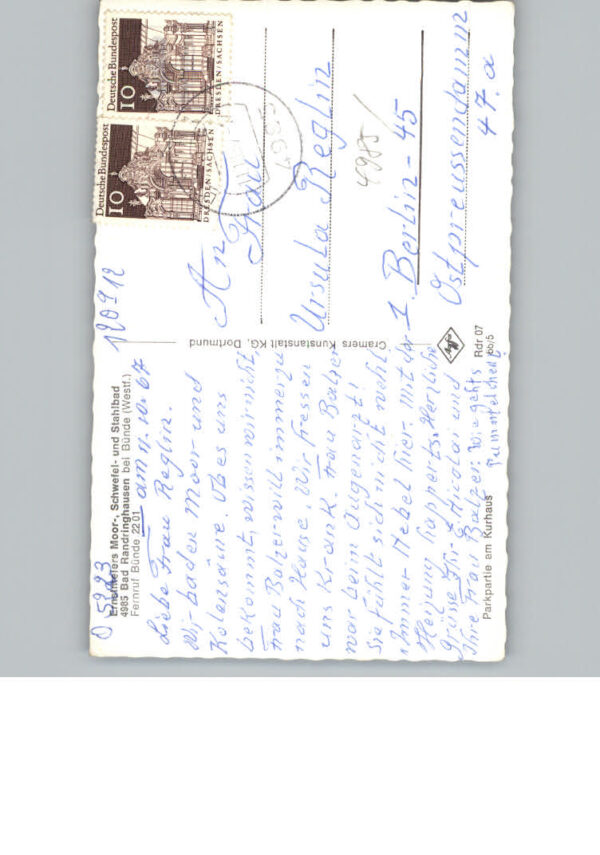 Ernstmeiers Moor-, Schwefel- und Stahlbad
4985 Bad Randringhausen bei Bünde (Westf.)
Fernruf Bünde 2201
am 11.10.67
Liebe Frau Reglin.
Wir baden Moor und
Kolensäure. Ob es uns
bekommt, wissen wir nicht,
Frau Balzer will immer zu
nach Hause. Wir fressen
uns Krank. Frau Balzer
war beim Augenarzt!
Sie Fühlt sich nicht wohl
immer Nebel hier. Mit der
Heizung happerts. Herzliche
Grüsse Ihr und
Ihre Frau Balzer. Wie gehts
Pummelchen?
Parkpartie am Kurhaus
Cramers Kunstanstalt KG, Dortmund
Rdr 07
66/5
120912
Deutsche Bundespost
10
DRESDEN/SACHSEN
Deutsche Bundespost
10
DRESDEN/SACHSEN
An
Frau
Ursula Reglin
4985/
1. Berlin-45
Ostpreussendamm
47. a